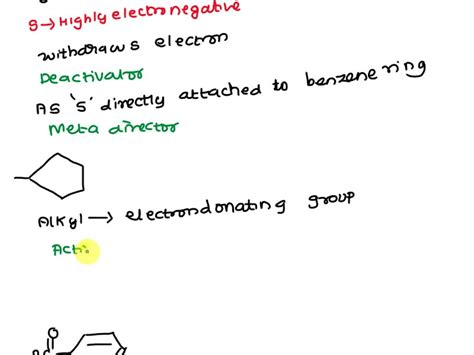 S→Highly electronegative
withdraws electron
Deactivator
As 's' directly attached to benzene ring
Meta director
Alkyl → electrondonating group
Acti
O